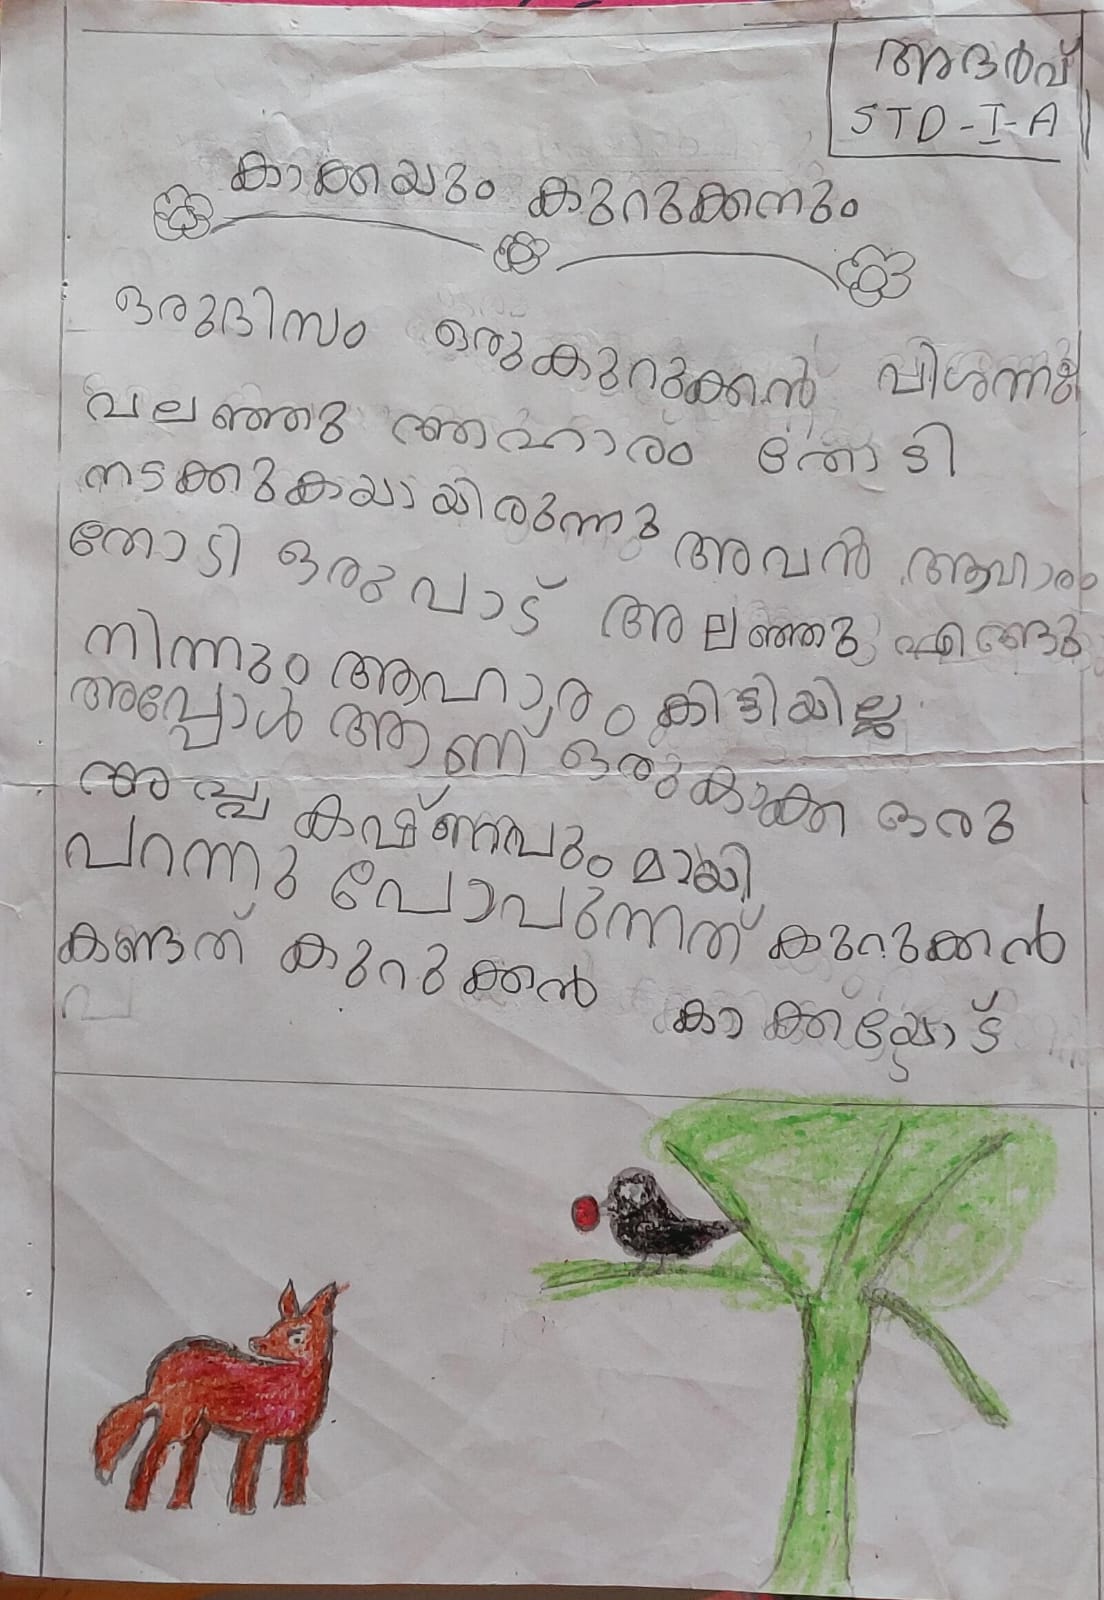 അദർവ്
STD-I-A
കാക്കയും കുറുക്കനും
ഒരുദിസം ഒരുകുറുക്കൻ വിശന്നു
വലഞ്ഞു ആഹാരം തേടി
നടക്കുകയായിരുന്നു അവൻ ആഹാരം
തോടി ഒരുപാട് അലഞ്ഞു എങ്ങു
നിന്നും ആഹാരം കിട്ടിയില്ല
അപ്പോൾ ആണ് ഒരുകാക്ക ഒരു
അപ്പ കഷ്ണവും മായി
പറന്നു പോവുന്നത് കുറുക്കൻ
കണ്ടത് കുറുക്കൻ കാക്കയോട്